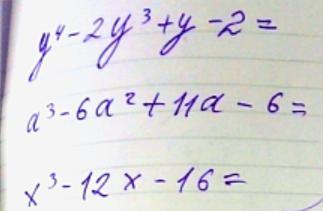 y⁴-2y³+y-2=
a³-6a²+11a-6=
x³-12x-16=